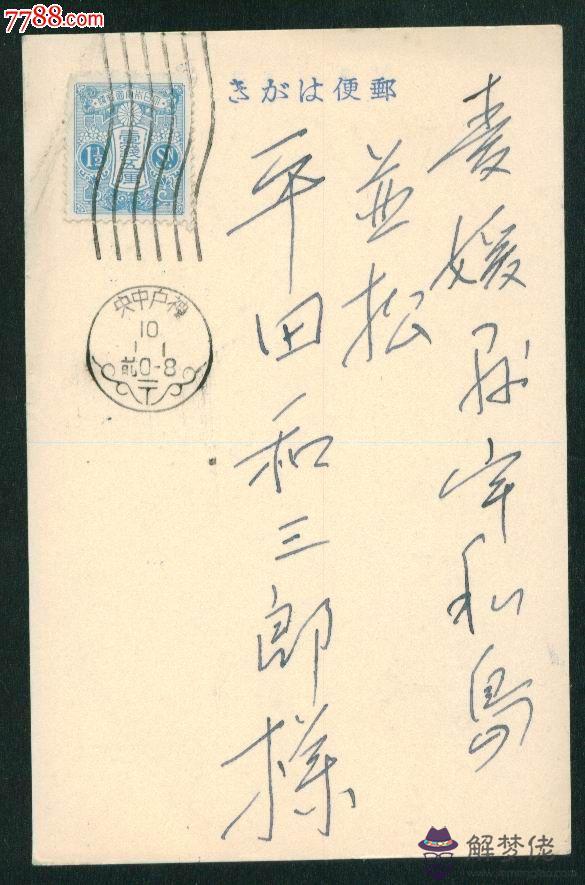 7788.com
郵便はがき
愛媛県宇和島
並松
平田和三郎様
壹錢五厘
1½ SN
神戸中央
10
1.1
前0-8
〒
解梦佬